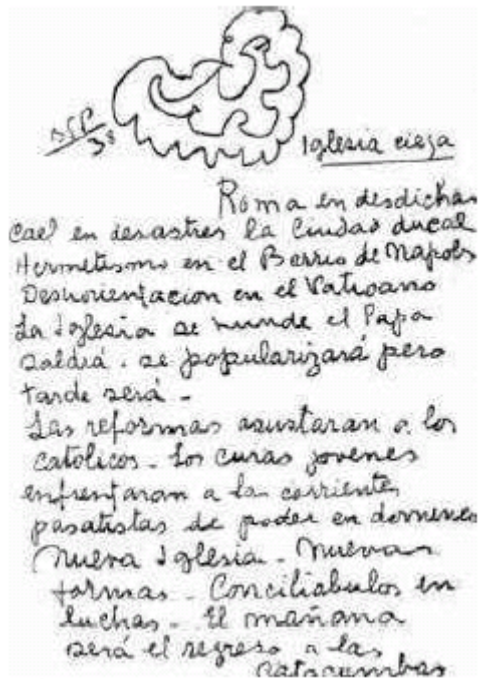 BSP
38
Iglesia ciega
Roma en desdichas
cae en desastres la Ciudad ducal
Hermetismo en el Barrio de Napols
Desorientacion en el Vaticano
La Iglesia se hunde el Papa
saldrá. se popularizará pero
tarde será -
Las reformas asustaran a los
catolicos. Los curas jovenes
enfrentaran a la corriente
pasatistas de poder en
Nueva Iglesia - Nuevas
formas - Conciliabulos en
luchas - El mañana
será el regreso a las
catacumbas